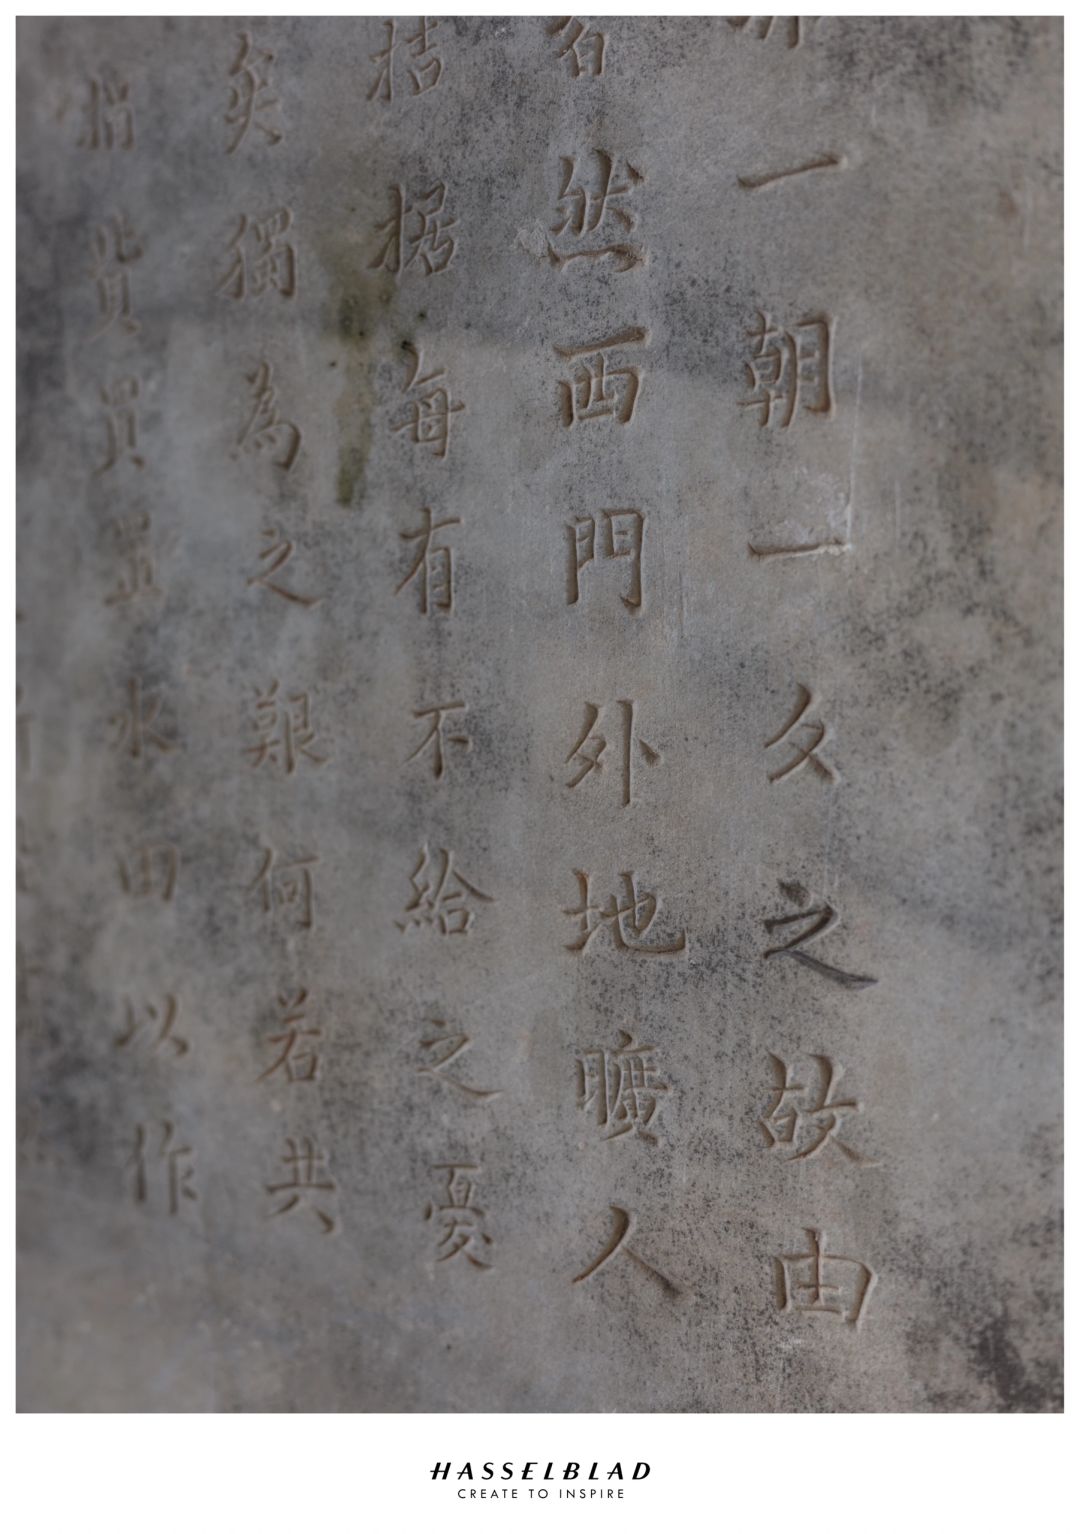 一朝一夕之故由
者然西門外地曠人
拮据每有不給之憂
矣獨為之艱何若共
捐貲買置水田以作
HASSELBLAD
CREATE TO INSPIRE